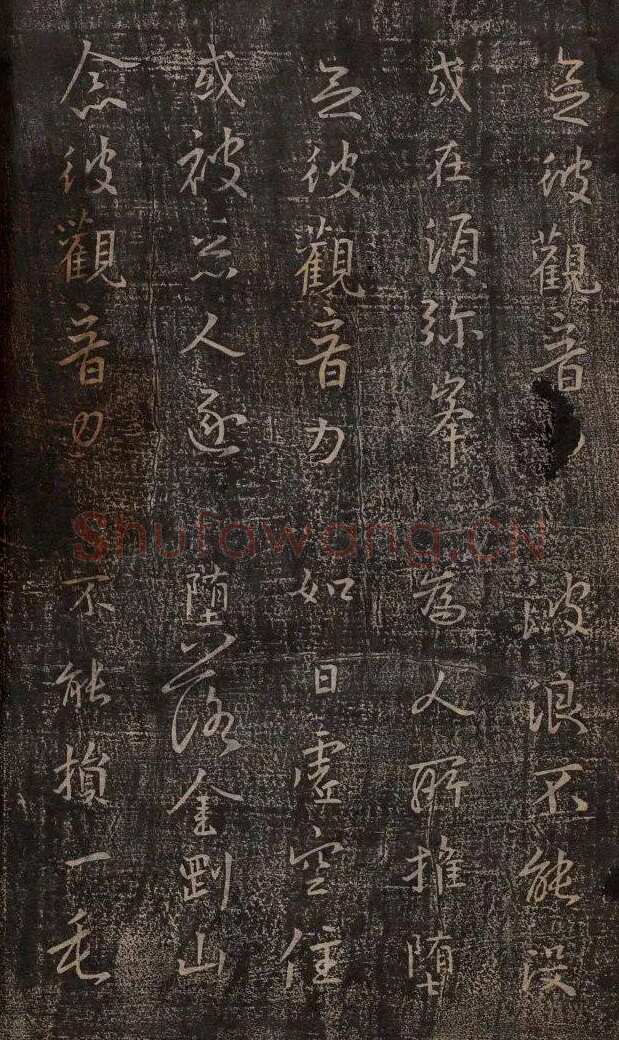 念彼觀音 波浪不能没
或在須弥峯 為人所推堕
念彼觀音力 如日虚空住
或被惡人逐 堕落金剛山
念彼觀音力 不能損一毛
Shufawang.CN